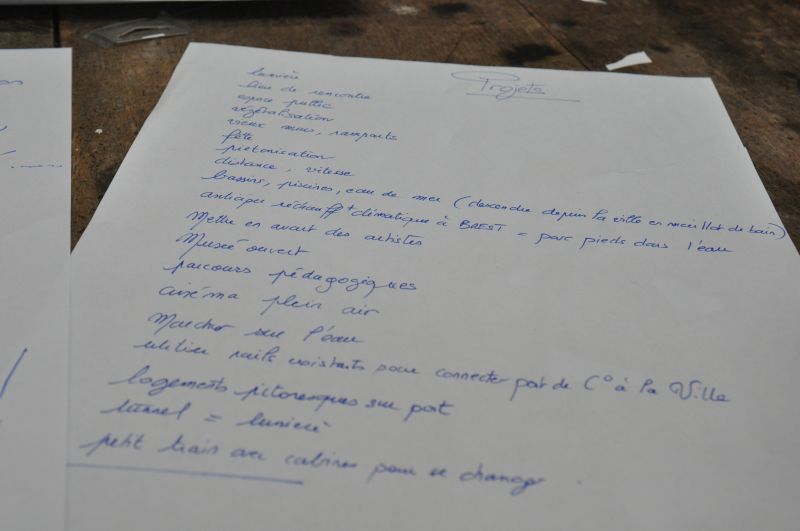 Projets
lumière
lieu de rencontre
espace public
végétalisation
vieux murs, remparts
fête
piétonisation
distance, vitesse
bassins, piscines, eau de mer (descendre depuis la ville en maillot de bain)
anticiper réchauff^t climatique à BREST = parc pieds dans l'eau
Mettre en avant des artistes
Musée ouvert
parcours pédagogiques
cinéma plein air
Marcher sur l'eau
utiliser rails existants pour connecter port de C° à la Ville
logements pittoresques sur port
tunnel = lumière
petit train avec cabines pour se changer